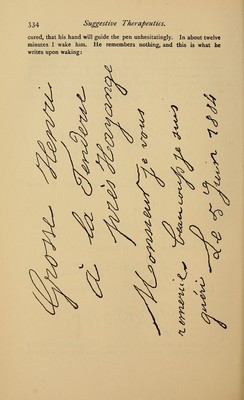 334 Suggestive Therapeutics.
cured, that his hand will guide the pen unhesitatingly. In about twelve
minutes I wake him. He remembers nothing, and this is what he
writes upon waking:
Grosse Henri
à la Fenderie
près Hayange
Monsieur je vous
remercie beaucoup je suis
guéri Le 5 Juin 1884